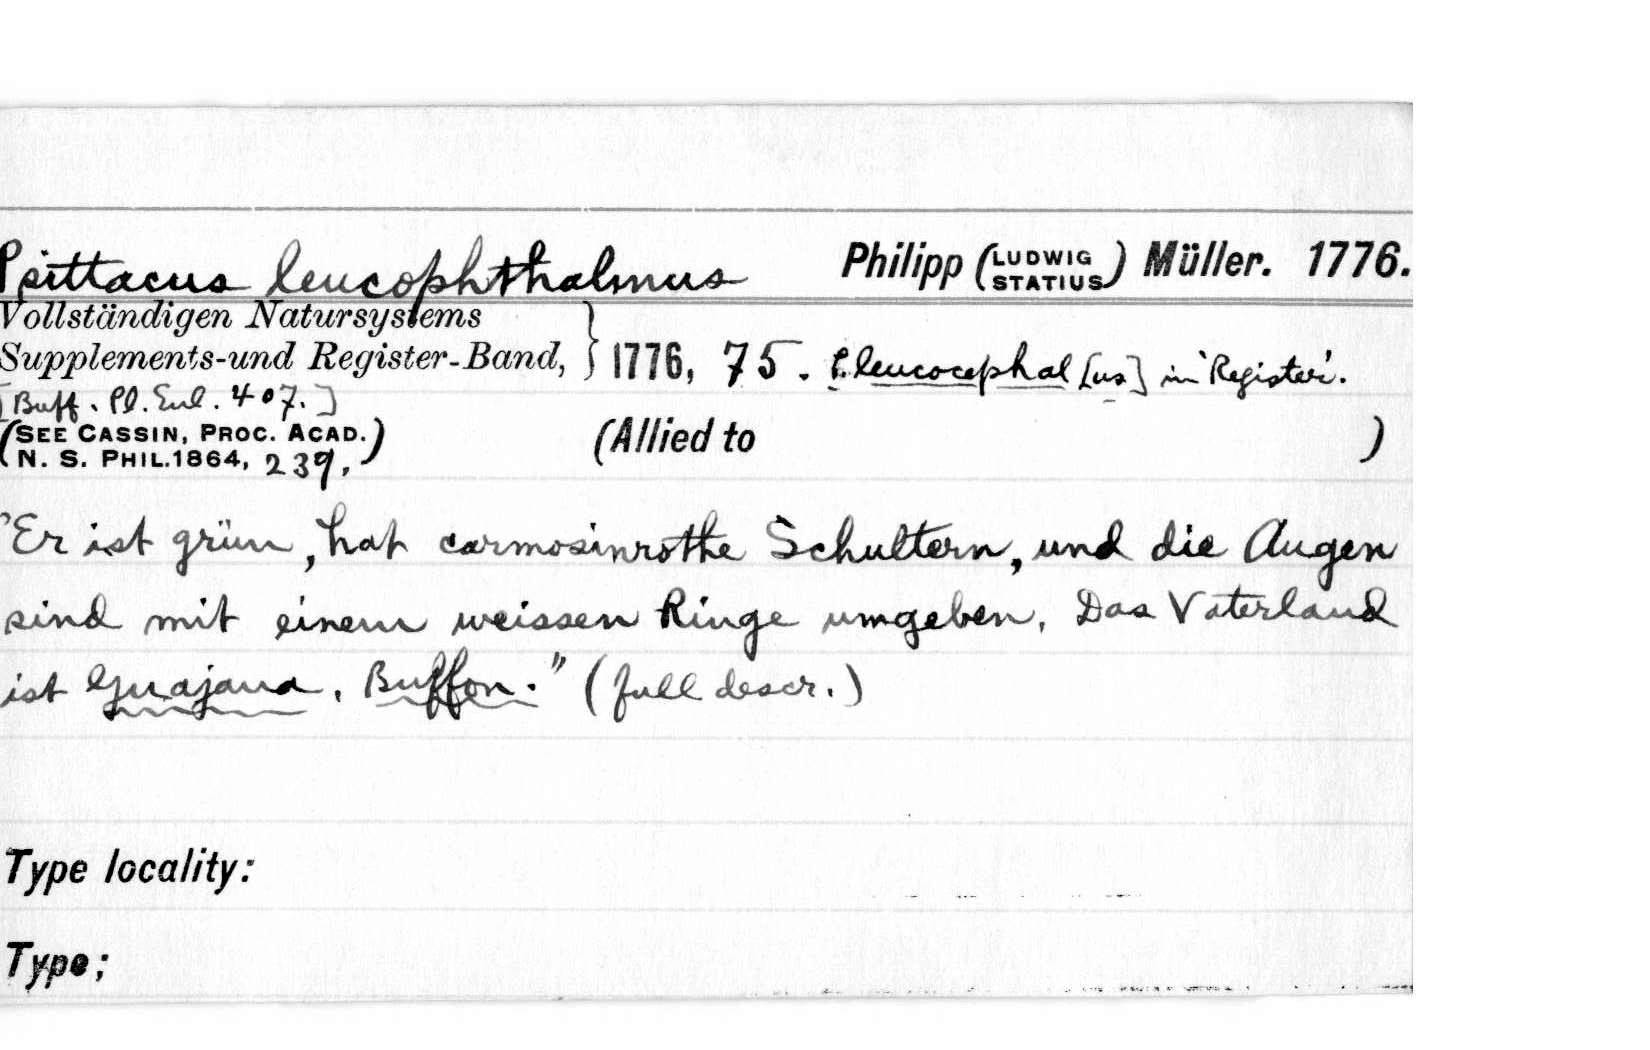 Psittacus leucophthalmus Philipp (LUDWIG STATIUS) Müller. 1776.
Vollständigen Natursystems
Supplements-und Register-Band, } 1776, 75. P. leucocephal [us] in 'Register'.
[Buff. Pl. Enl. 407.]
(SEE CASSIN, PROC. ACAD.
N. S. PHIL. 1864, 239.) (Allied to )
"Er ist grün, hat carmosinrothe Schultern, und die Augen
sind mit einem weissen Ringe umgeben. Das Vaterland
ist Guajana. Buffon." (full descr.)
Type locality:
Type;